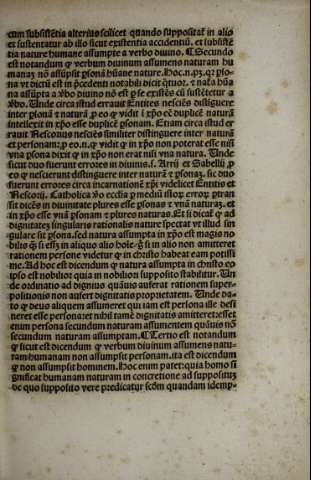 cum subsistentia alterius scilicet quando supposital' in alio
et sustentatur ab illo sicut existentia accidentiũ. et subsistẽ
tia nature humane assumpte a verbo diuino. ¶ Secundo
est notandum ꝙ verbum diuinum assumens naturam hu
manaȝ nõ assũpsit p̱sonã hũane nature. Hoc
va vt dictũ est in p̃cedenti notabili dicit
na assumpta a v̓bo diuino nõ est p̱ se existẽs cũ sustẽtetur a
v̓bo. Unde circa istud errauit Entites nesciẽs distinguere
inter p̱sonã ⁊ naturã p̱ eo ꝙ vidit ĩ xp̃o eẽ duplicẽ naturã
intellexit in xp̃o esse duplicẽ p̱sonam. Etiam circa istud er
rauit Nestorius nesciẽs similiter distinguere inter naturã
et personam: p̱ eo.n. ꝙ vidit ꝙ in xp̃o non poterat esse nisi
vna p̱sona dixit ꝙ in xp̃o non erat nisi vna natura. Unde
sicut duo fuerunt errores in diuinis.s. Arrij et Sabellij p̱
eo ꝙ nesciuerunt distinguere inter naturã ⁊ p̱sonaȝ. sic duo
fuerunt errores circa incarnationẽ xp̃i videlicet Entitis et
Nestorij. Catholica v̓o ecclĩa p̱ mediũ istoȝ erroȝ ptran
sit dicẽs in diuinitate plures esse p̱sonas ⁊ vnã naturaȝ. et
in xp̃o esse vnã p̱sonam ⁊ plures naturas. Et si dicat' ꝙ ad
dignitateȝ singularis rationalis nature spectat vt illud sin
gulare sit p̱sona. sed natura assumpta in xp̃o est magis no
bilis ꝙ̃ si esset in aliquo alio hoĩe ꝙ si in alio non amitteret
rationem persone videtur ꝙ in christo habeat eam potissi
me. Ad hoc est dicendum ꝙ natura assumpta in christo eo
ipso est nobilior quia in nobiliori supposito stabilitur. Un
de ordinatio ad dignius quãuis auferat rationem supper-
positionis non aufert dignitatis proprietatem. Unde da-
to ꝙ deus aliquem assumeret qui iam est persona ille desi
neret esse persona: et nihil tamẽ dignitatis amitteret: esset
enim persona secundum naturam assumentem quãuis nõ
secundum naturam assumptam. ¶ Tertio est notandum
ꝙ sicut est dicendum ꝙ verbum diuinum assumens natu-
ram humanam non assumpsit personam. ita est dicendum
ꝙ non assumpsit hominem. Hoc enim patet: quia homo si
gnificat humanam naturam in concretione ad suppositũ:
hoc quo supposito vere predicatur scdm quandam idemp-